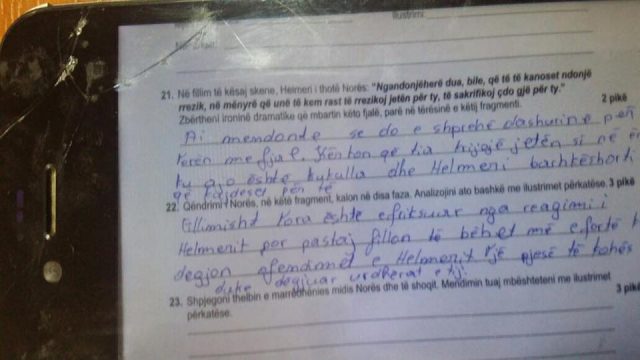 Ilustrimi:
21. Në fillim të kësaj skene, Helmeri i thotë Norës: "Ngandonjëherë dua, bile, që të të kanoset ndonjë
rrezik, në mënyrë që unë të kem rast të rrezikoj jetën për ty, të sakrifikoj çdo gjë për ty."
Zbërtheni ironinë dramatike që mbartin këto fjalë, parë në tërësinë e këtij fragmenti. 2 pikë
Ai mendonte se do e shprehë dashurinë për
Norën me fjalë. që tia jetën si në
ku ajo është kukulla dhe Helmeri bashkëshorti
që kujdeset për të
22. Qëndrimi i Norës, në këtë fragment, kalon në disa faza. Analizojini ato bashkë me ilustrimet përkatëse. 3 pikë
Fillimisht Nora është e friksuar nga reagimi i
Helmerit por pastaj fillon të bëhet më e fortë
degjon ofendimet e Helmerit një pjesë të kohës
duke degjuar urdhërat e tij
23. Shpjegoni thelbin e marrëdhënies midis Norës dhe të shoqit. Mendimin tuaj mbështeteni me ilustrimet
përkatëse. 3 pikë